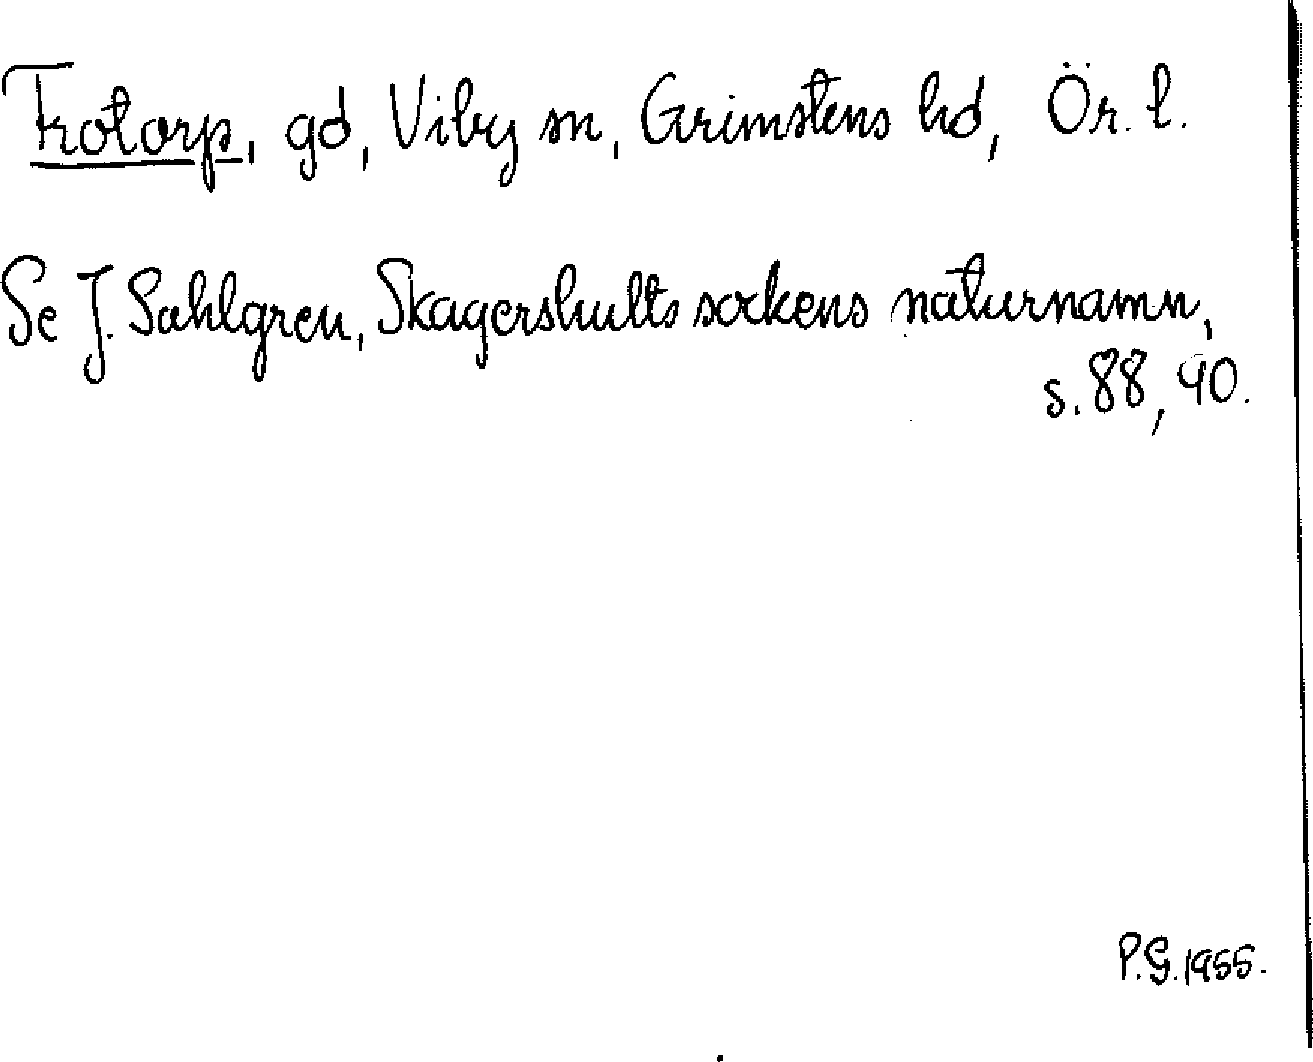 Trotorp, gd, Viby sn, Grimstens hd, Ör. l.
Se J. Sahlgren, Skagershults sockens naturnamn,
s. 88, 90.
P.G. 1955.